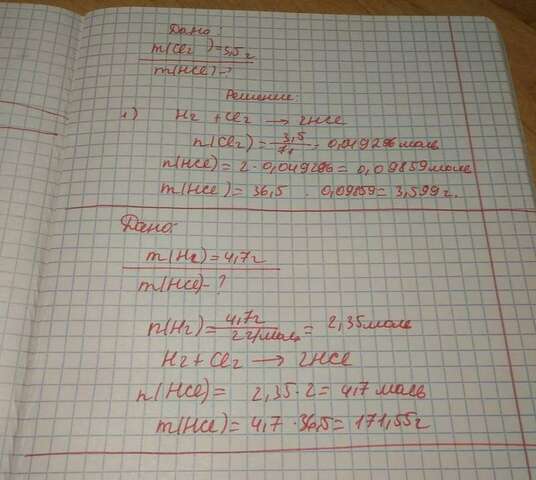 Дано:
m(Cl2) = 3,5 г
m(HCl) - ?
Решение:
1) H2 + Cl2 → 2HCl
n(Cl2) = 3,5/71 = 0,049296 моль
n(HCl) = 2 · 0,049296 = 0,09859 моль
m(HCl) = 36,5 · 0,09859 = 3,599 г.
Дано:
m(H2) = 4,7 г
m(HCl) - ?
n(H2) = 4,7 г/2 г/моль = 2,35 моль
H2 + Cl2 → 2HCl
n(HCl) = 2,35 · 2 = 4,7 моль
m(HCl) = 4,7 · 36,5 = 171,55 г